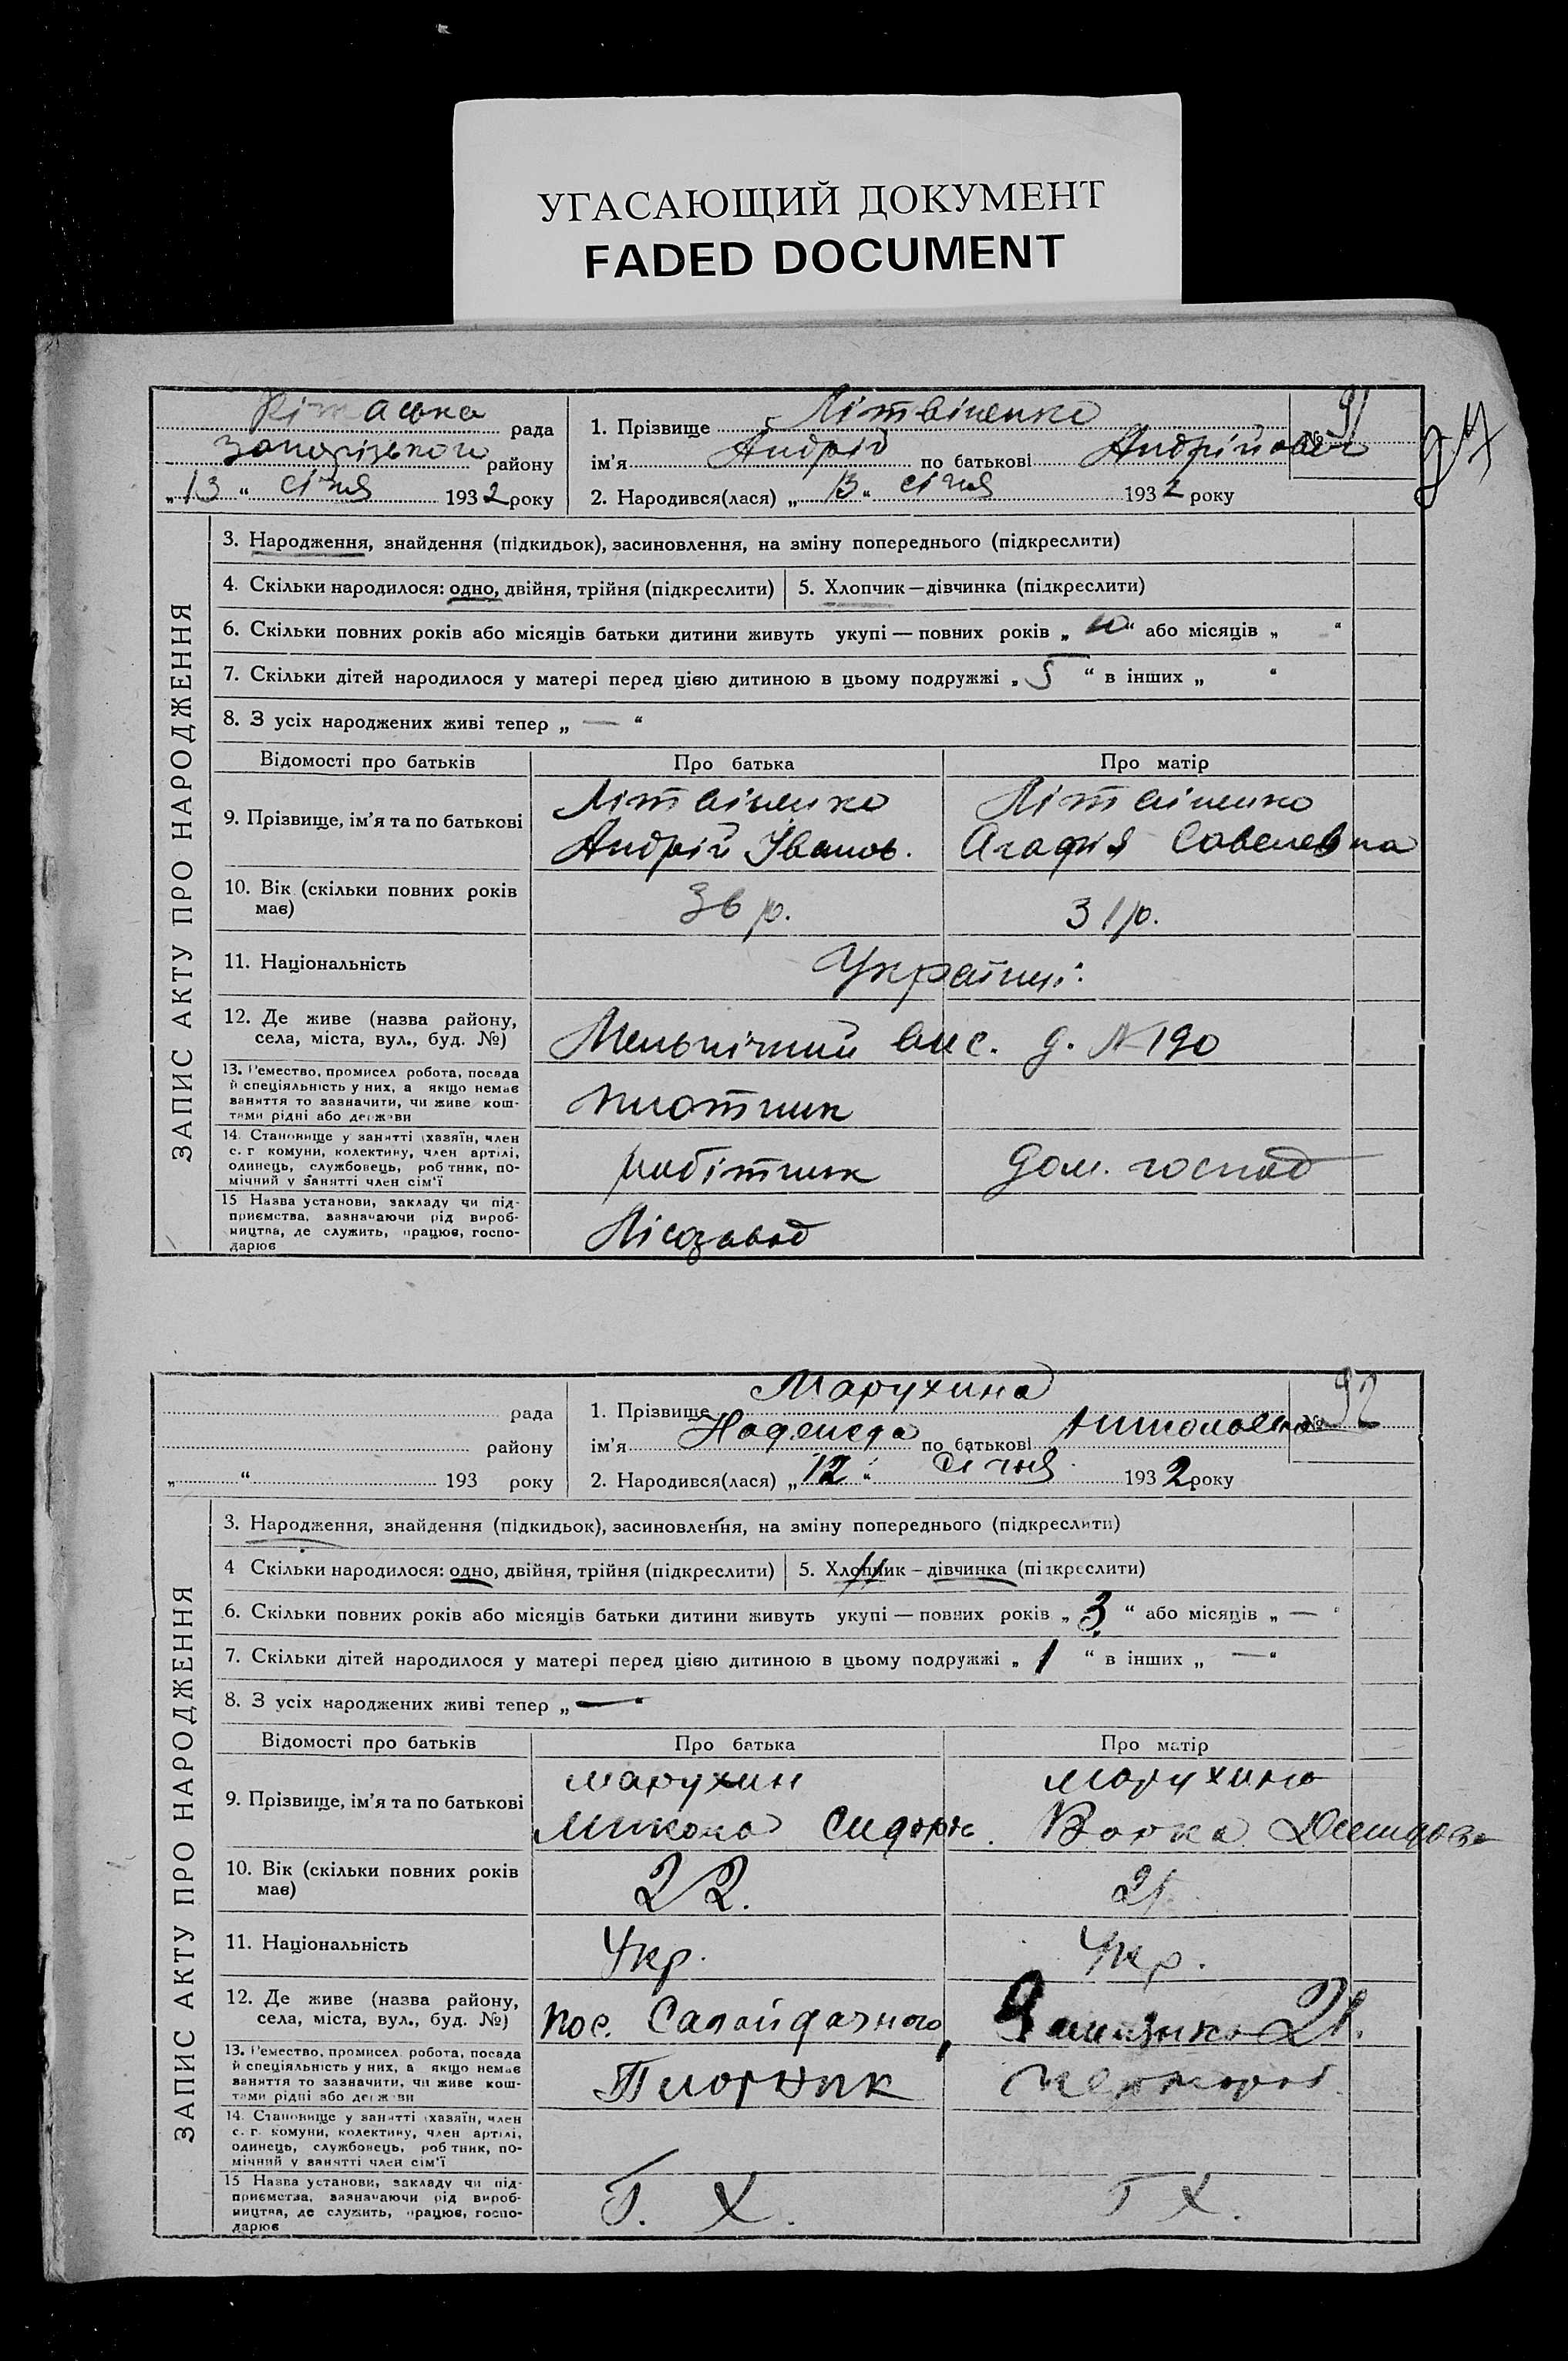 УГАСАЮЩИЙ ДОКУМЕНТ
FADED DOCUMENT
рада
Запорізького району
„13“ січня 1932 року
1. Прізвище Літвіненко
№ 91
ім’я Андрій по батькові Андрійович
2. Народився(лася) „13“ січня 1932 року
ЗАПИС АКТУ ПРО НАРОДЖЕННЯ
3. Народження, знайдення (підкидьок), засиновлення, на зміну попереднього (підкреслити)
4. Скільки народилося: одно, двійня, трійня (підкреслити) 5. Хлопчик — дівчинка (підкреслити)
6. Скільки повних років або місяців батьки дитини живуть укупі — повних років „10“ або місяців „ “
7. Скільки дітей народилося у матері перед цією дитиною в цьому подружжі „5“ в інших „ “
8. З усіх народжених живі тепер „—“
Відомості про батьків Про батька Про матір
9. Прізвище, ім’я та по батькові
Літвіненко Літвіненко
Андрій Іванов. Агафія Савелевна
10. Вік (скільки повних років має) 36 р. 31 р.
11. Національність Українці
12. Де живе (назва району, села, міста, вул., буд. №)
вис. д. №190
13. Ремество, промисел робота, посада
й спеціяльність у них, а якщо немає
заняття то зазначити, чи живе кош-
тами рідні або держави
плотник
14. Становище у занятті (хазяїн, член
с. г комуни, колективу, член артілі,
одинець, службовець, робітник, по-
мічний у занятті член сім’ї
робітник дом. господ
15 Назва установи, закладу чи під-
приємства, зазначаючи рід вироб-
ництва, де служить, працює, госпо-
дарює
Лісозавод
рада
району
„ “ 193 року
1. Прізвище Марухина
№ 92
ім’я по батькові
2. Народився(лася) „12“ січня 1932 року
ЗАПИС АКТУ ПРО НАРОДЖЕННЯ
3. Народження, знайдення (підкидьок), засиновлення, на зміну попереднього (підкреслити)
4 Скільки народилося: одно, двійня, трійня (підкреслити) 5. Хлопчик — дівчинка (підкреслити)
6. Скільки повних років або місяців батьки дитини живуть укупі — повних років „3“ або місяців „—“
7. Скільки дітей народилося у матері перед цією дитиною в цьому подружжі „1“ в інших „—“
8. З усіх народжених живі тепер „—“
Відомості про батьків Про батька Про матір
9. Прізвище, ім’я та по батькові
Марухин Марухина
Микола Сидоров.
10. Вік (скільки повних років має) 22. 21
11. Національність Укр. Укр.
12. Де живе (назва району, села, міста, вул., буд. №)
пос. Сагайдачного, 21.
13. Ремество, промисел робота, посада
й спеціяльність у них, а якщо немає
заняття то зазначити, чи живе кош-
тами рідні або держави
Плотник
14. Становище у занятті (хазяїн, член
с. г. комуни, колективу, член артілі,
одинець, службовець, робітник, по-
мічний у занятті член сім’ї
15 Назва установи, закладу чи під-
приємства, зазначаючи рід вироб-
ництва, де служить, працює, госпо-
дарює
Г. Х. Г Х.